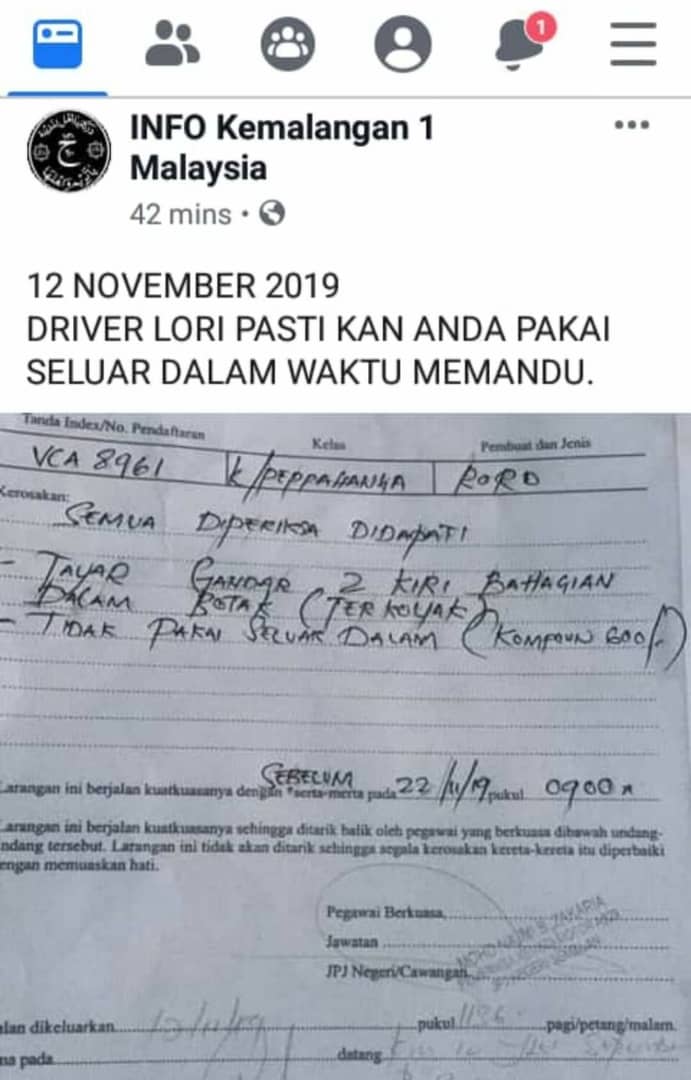 1
INFO Kemalangan 1
Malaysia
42 mins
12 NOVEMBER 2019
DRIVER LORI PASTI KAN ANDA PAKAI
SELUAR DALAM WAKTU MEMANDU.
Tanda Index/No. Pendaftaran Kelas Pembuat dan Jenis
VCA 8961
Kerosakan:
SEMUA DIPERIKSA DIDAPATI
- TAYAR GANDAR 2 KIRI BAHAGIAN
DALAM BOTAK (TERKOYAK)
- TIDAK PAKAI SELUAR DALAM (KOMPOUN 600/-)
SEBELUM
Larangan ini berjalan kuatkuasanya dengan *serta-merta pada 22/11/19 pukul 0900
Larangan ini berjalan kuatkuasanya sehingga ditarik balik oleh pegawai yang berkuasa dibawah undang-
undang tersebut. Larangan ini tidak akan ditarik sehingga segala kerosakan kereta-kereta itu diperbaiki
dengan memuaskan hati.
Pegawai Berkuasa
Jawatan
JPJ Negeri/Cawangan
dikeluarkan 12/11/19 pukul pagi/petang/malam.
pada datang